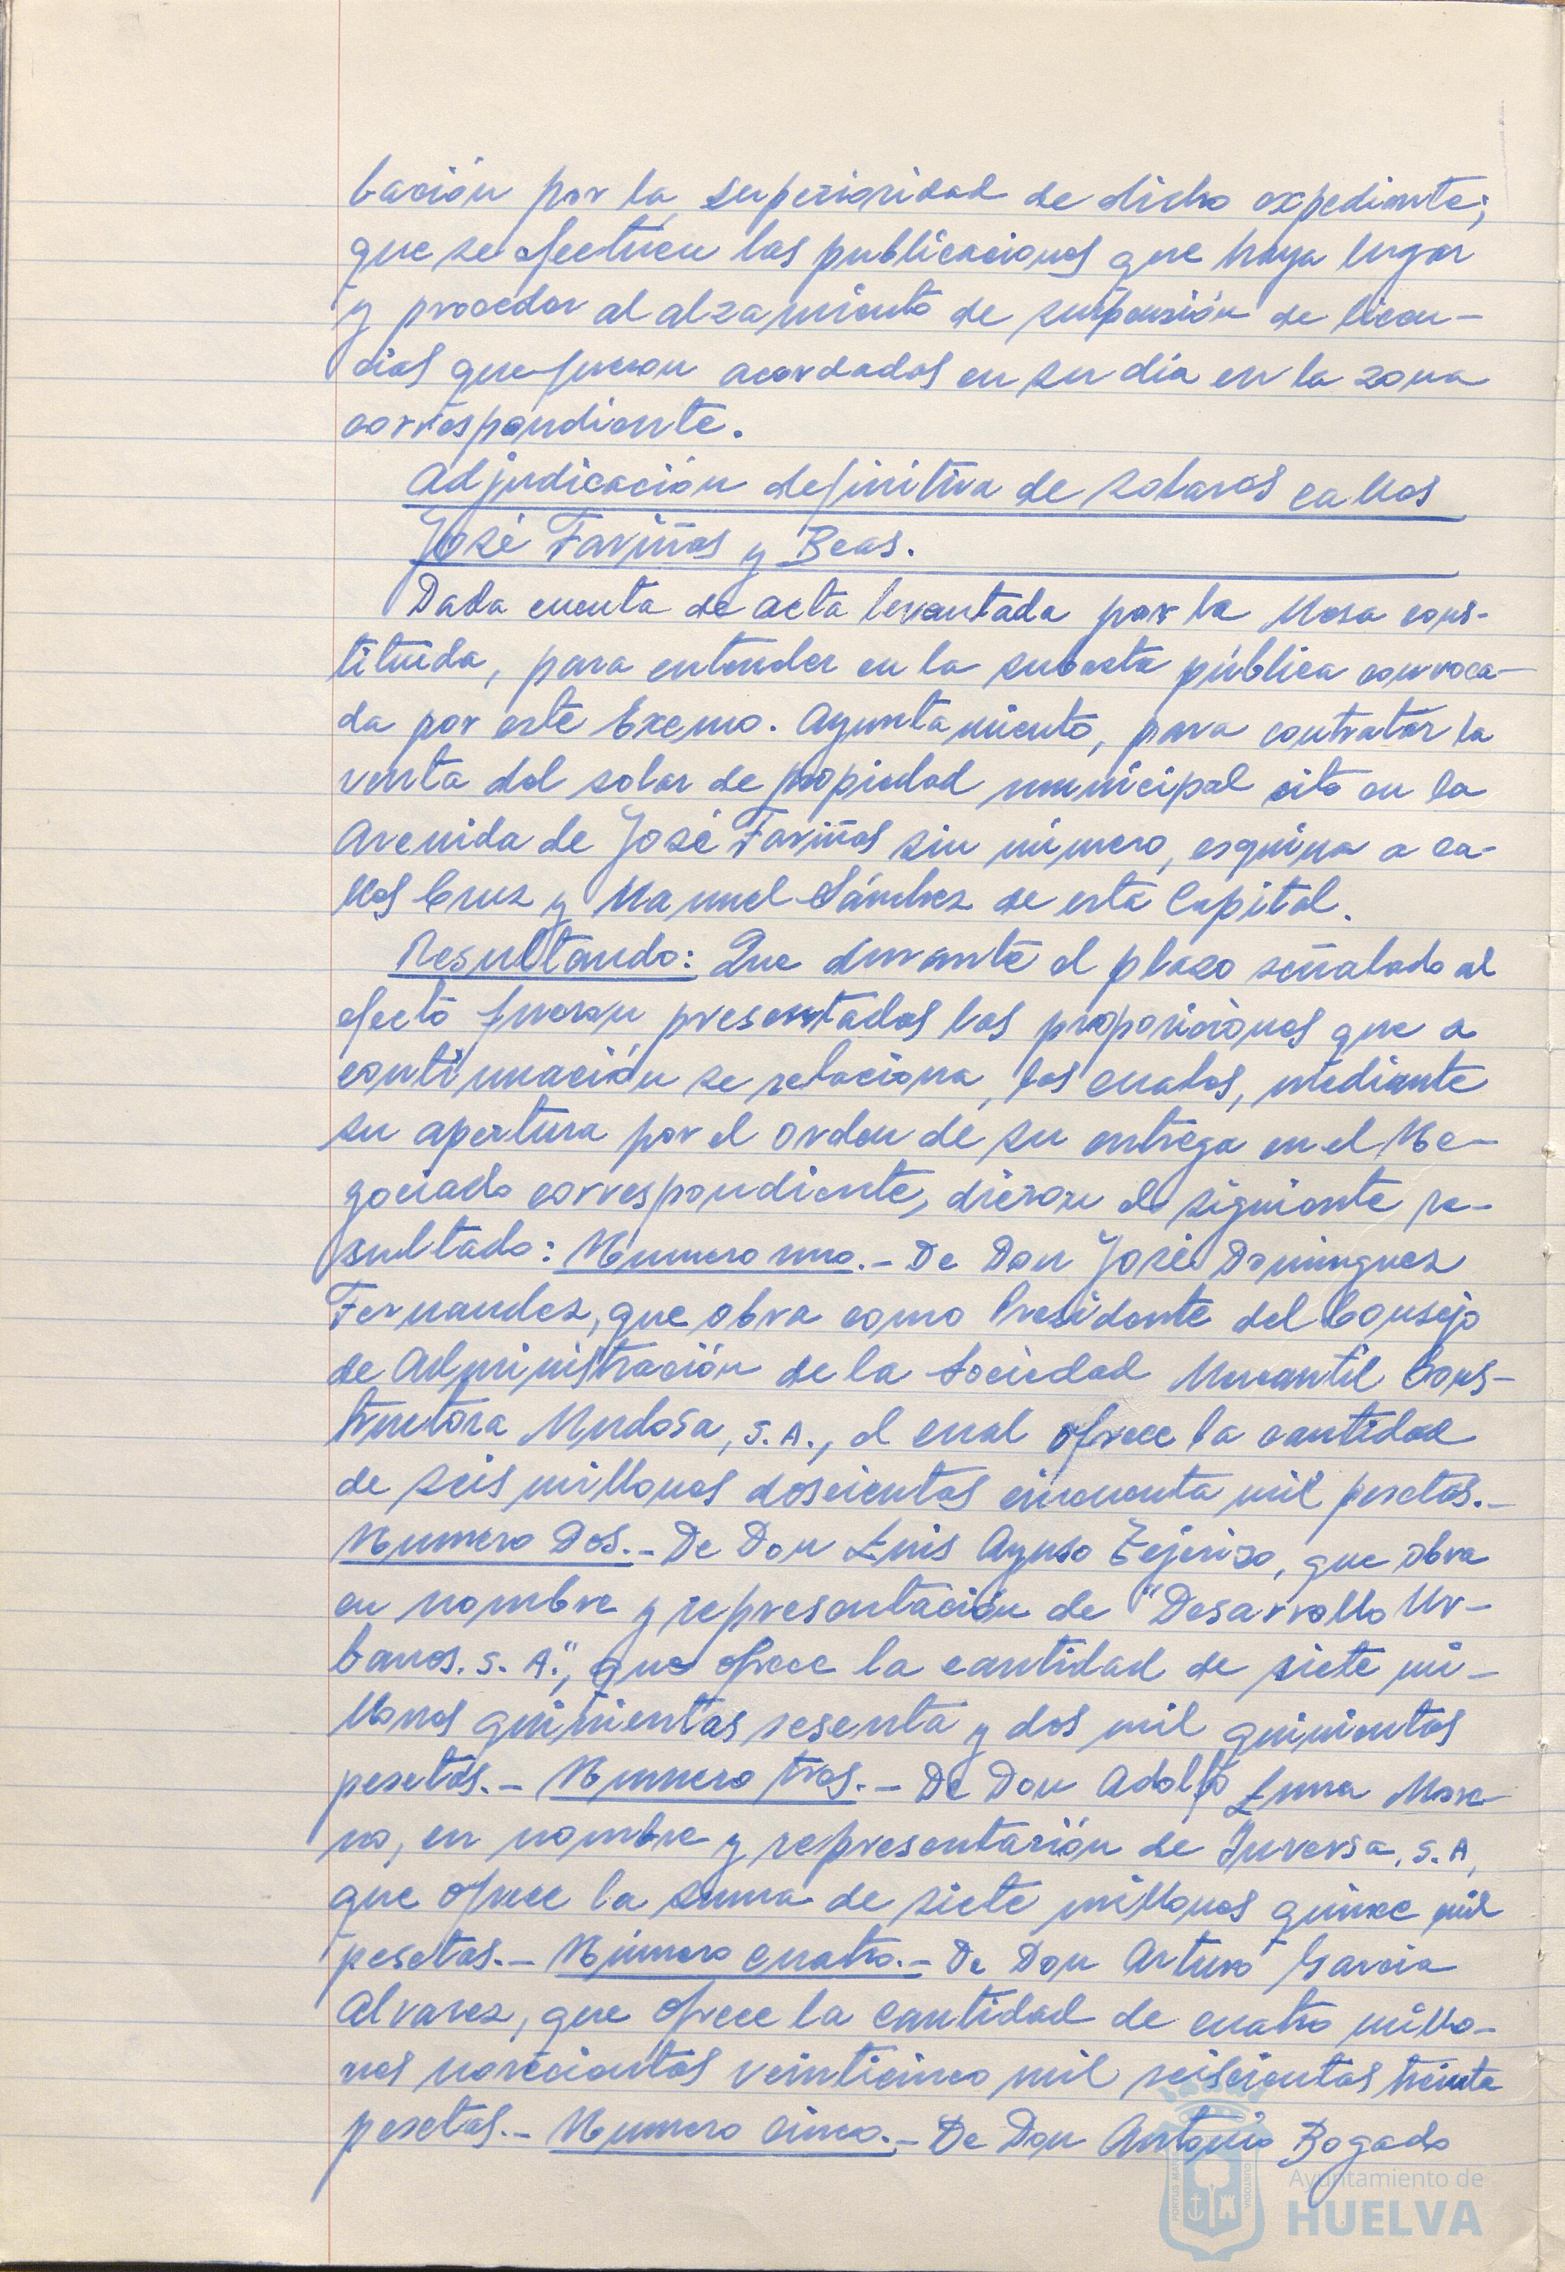 bación por la superioridad de dicho expediente;
que se efectúen las publicaciones que haya lugar
y proceder al alzamiento de suspensión de licen-
cias que fueron acordadas en su día en la zona
correspondiente.
Adjudicación definitiva de solares calles
José Fariñas y Beas.
Dada cuenta de acta levantada por la Mesa cons-
tituida, para entender en la subasta pública convoca-
da por este Excmo. Ayuntamiento, para contratar la
venta del solar de propiedad municipal sito en la
Avenida de José Fariñas sin número, esquina a ca-
lles Cruz y Manuel Sánchez de esta Capital.
Resultando: Que durante el plazo señalado al
efecto fueron presentadas las proposiciones que a
continuación se relaciona, las cuales, mediante
su apertura por el orden de su entrega en el Ne-
gociado correspondiente, dieron el siguiente re-
sultado: Numero uno.- De Don José Dominguez
Fernandez, que obra como Presidente del Consejo
de Administración de la Sociedad Mercantil Cons-
tructora Mudosa, S.A., el cual ofrece la cantidad
de seis millones doscientas cincuenta mil pesetas.-
Numero Dos.- De Don Luis Ayuso Tejerizo, que obra
en nombre y representación de "Desarrollo Ur-
banos. S. A.", que ofrece la cantidad de siete mi-
llones quinientas sesenta y dos mil quinientas
pesetas.- Numero tres.- De Don Adolfo Luna More-
no, en nombre y representación de Inversa, S.A,
que ofrece la suma de siete millones quince mil
pesetas.- Número cuatro.- De Don Arturo Garcia
Alvarez, que ofrece la cantidad de cuatro millo-
nes novecientas veinticinco mil seiscientas treinta
pesetas.- Numero cinco.- De Don Antonio Bogado
PORTUS MARIS
CUSTODIA
Ayuntamiento de
HUELVA